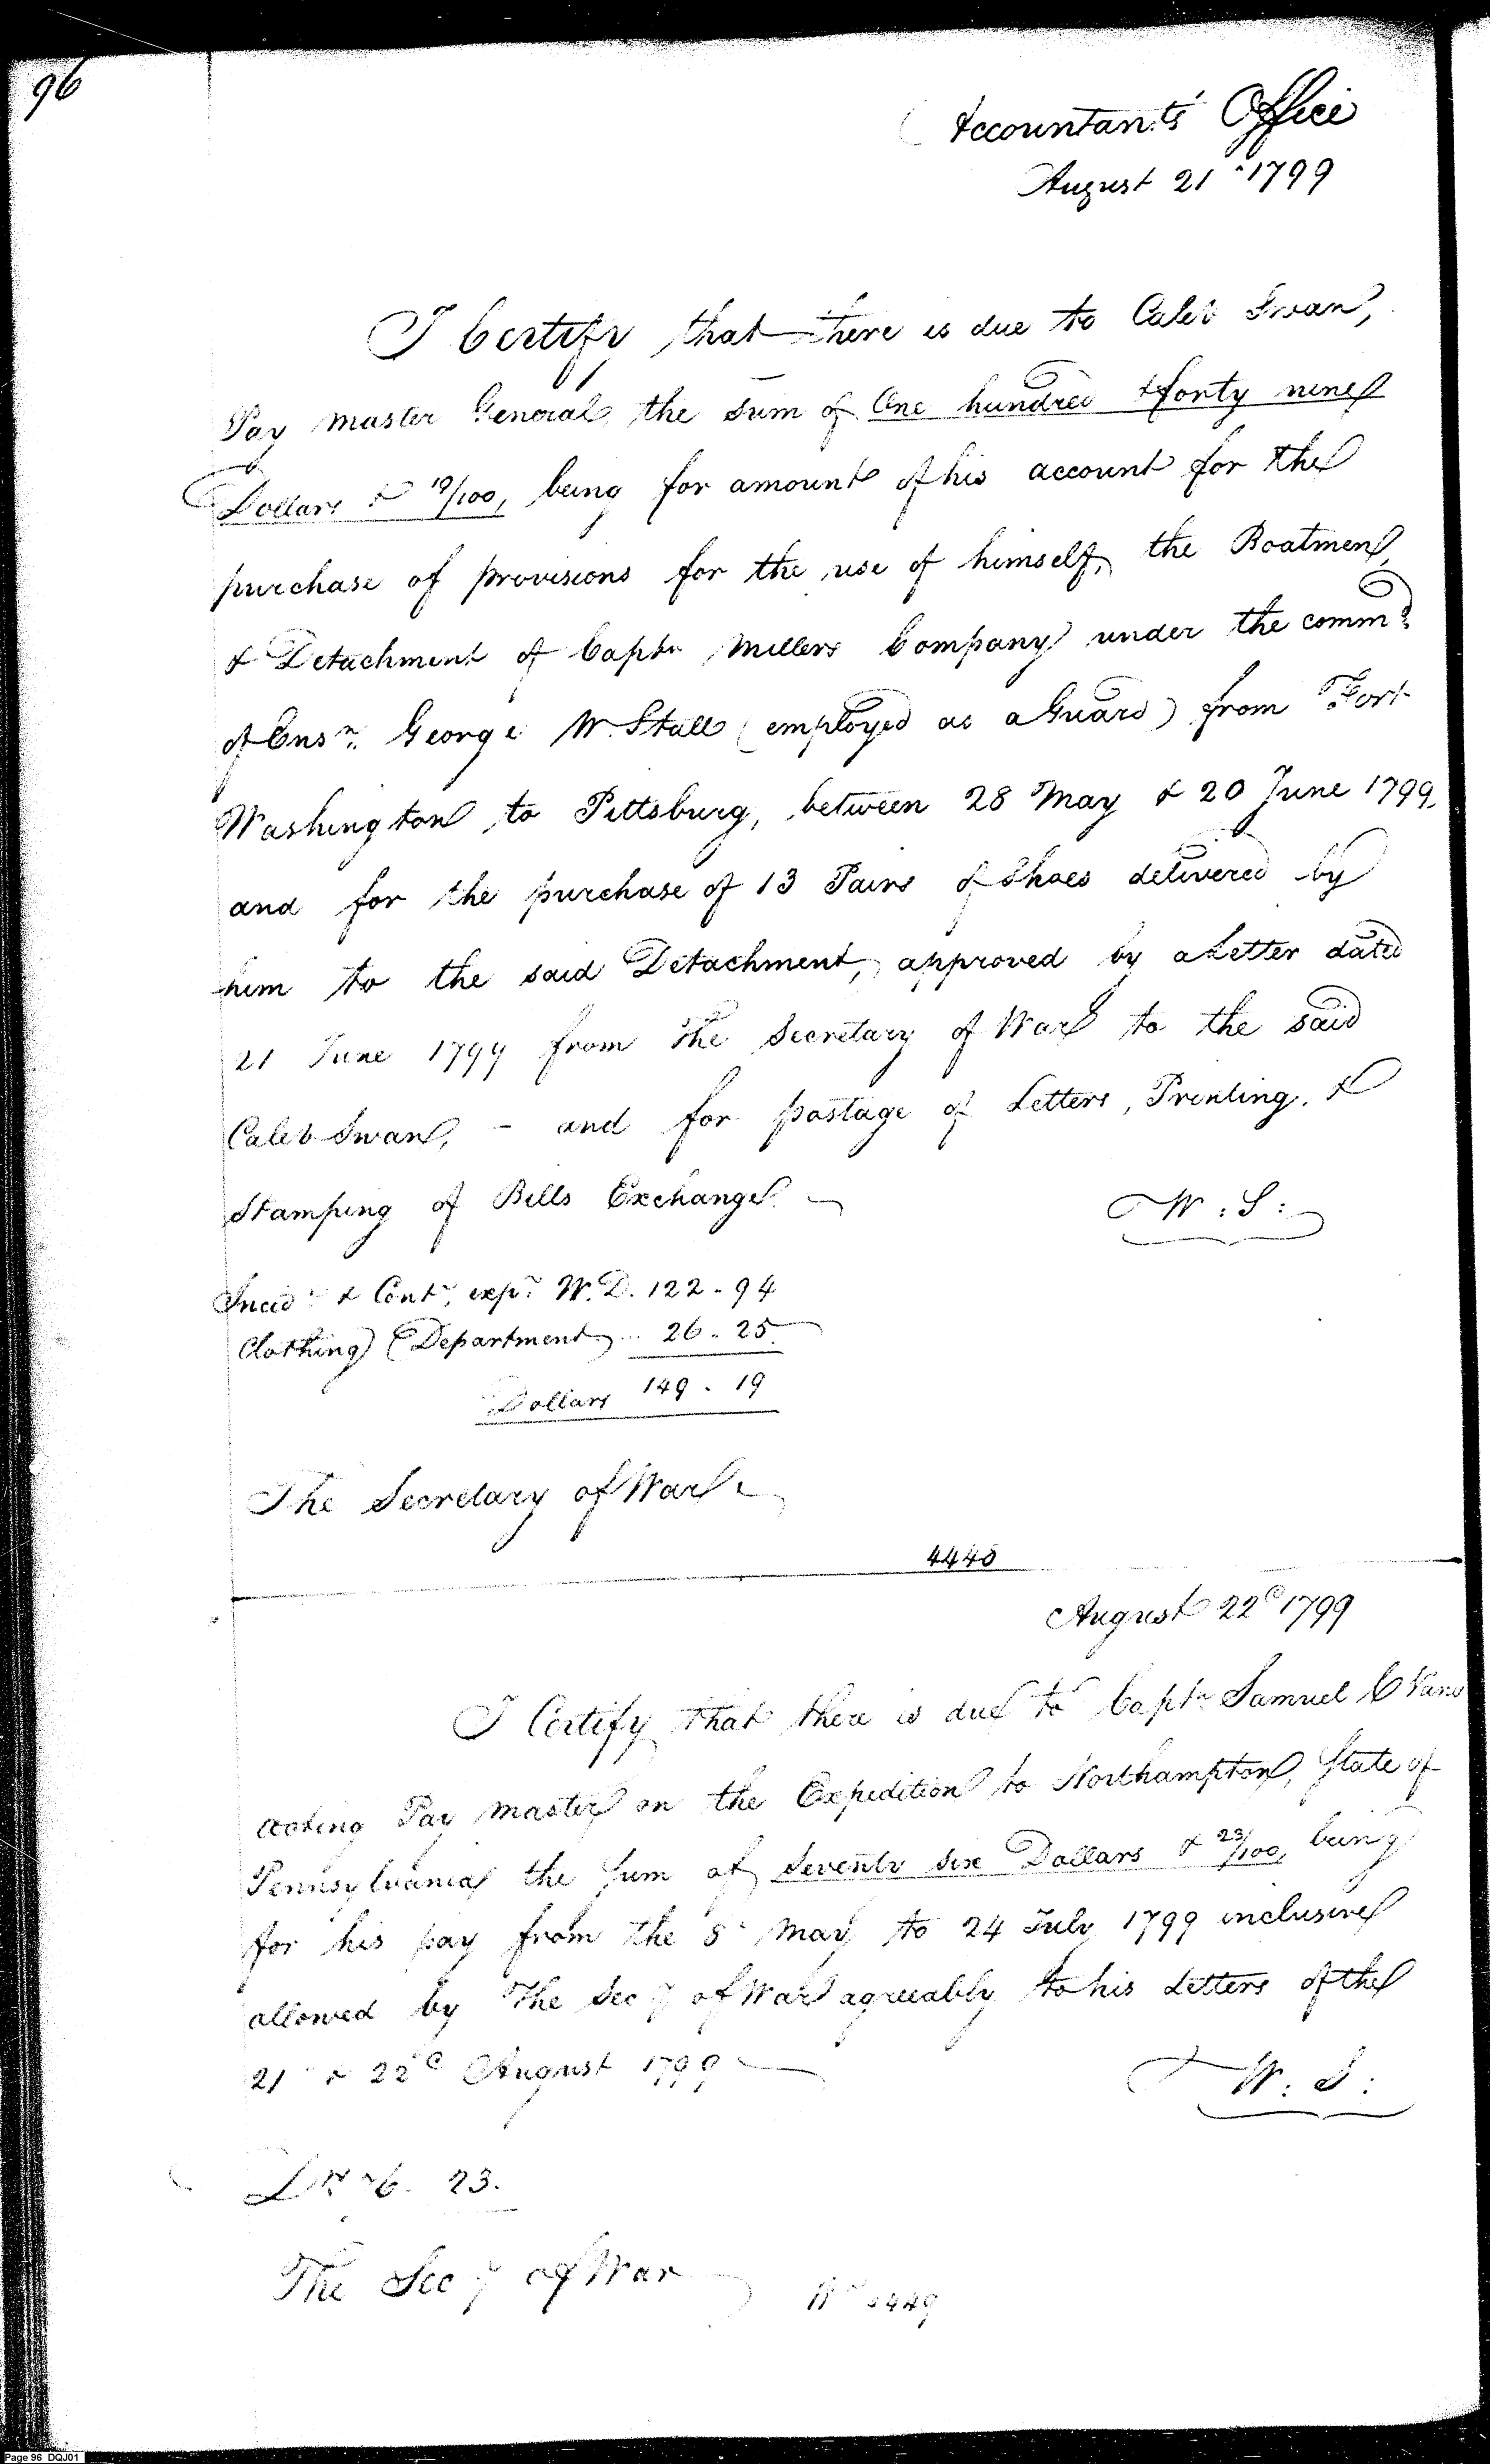 96
Accountants' Office
August 21st 1799
I Certify that there is due to Caleb Swan,
Pay master General, the sum of One hundred & forty nine
Dollars & 19/100, being for amount of his account for the
purchase of provisions for the use of himself, the Boatmen,
& Detachment of Captn Millers Company under the commd
of Ensn. George W. Stall (employed as a Guard) from Fort
Washington to Pittsburg, between 28 May & 20 June 1799.
and for the purchase of 13 Pairs of Shoes delivered by
him to the said Detachment, approved by a Letter dated
21 June 1799 from the Secretary of War to the said
Caleb Swan, - and for postage of Letters, Printing, &
Stamping of Bills Exchange.
W : S :
Incidt & Contt. exps W. D. 122 - 94
Clothing Department 26 - 25
Dollars 149 - 19
The Secretary of War
4448
August 22d 1799
I Certify that there is due to Captn Samuel C Vans
acting Pay master on the Expedition to Northampton, State of
Pennsylvania the sum of Seventy six Dollars & 23/100, being
for his pay from the 8th May to 24 July 1799 inclusive
allowed by the Secy of War agreeably to his Letters of the
21st & 22d August 1799
W : S :
Drs 76. 23.
The Secy of War
No 4449
Page 96 DQJ01